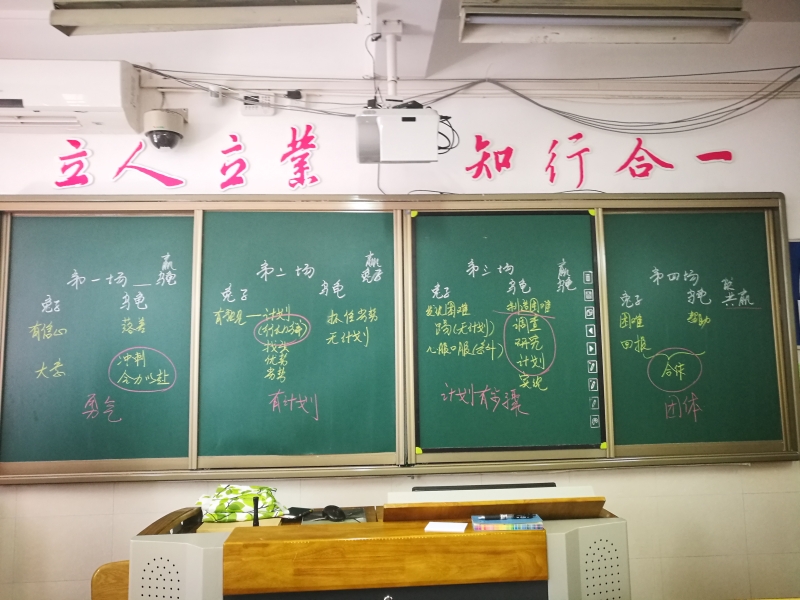 立人立業
知行合一
第一场
赢
乌龟
兔子
乌龟
有信心
落后
大意
冲刺
全力以赴
勇气
第二场
赢
兔子
乌龟
计划
找头
优势
劣势
无计划
有计划
第三场
赢
乌龟
兔子
乌龟
发现困难
制造困难
(无计划)
调查
研究
计划
实现
计划有步骤
第四场
共赢
兔子
乌龟
困难
帮助
回报
合作
团体